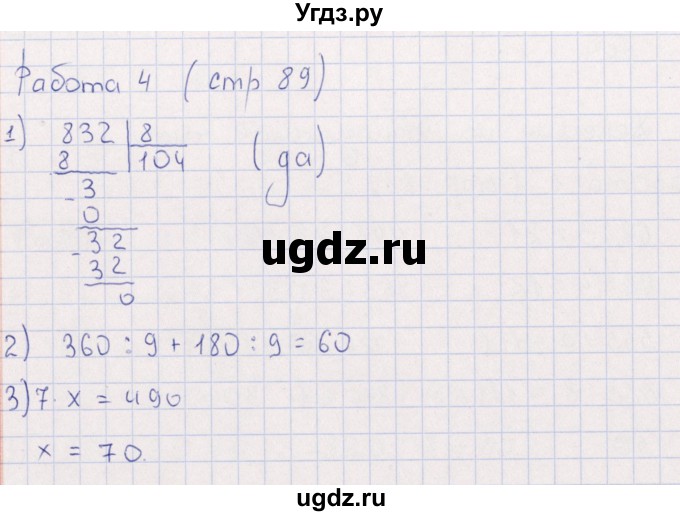 Угдз.ру
Работа 4 (стр 89)
1) 832 | 8
8 | 104 (да)
- 3
0
- 32
32
0
ugdz.ru
2) 360 : 9 + 180 : 9 = 60
3) 7 · x = 490
x = 70.
ugdz.ru